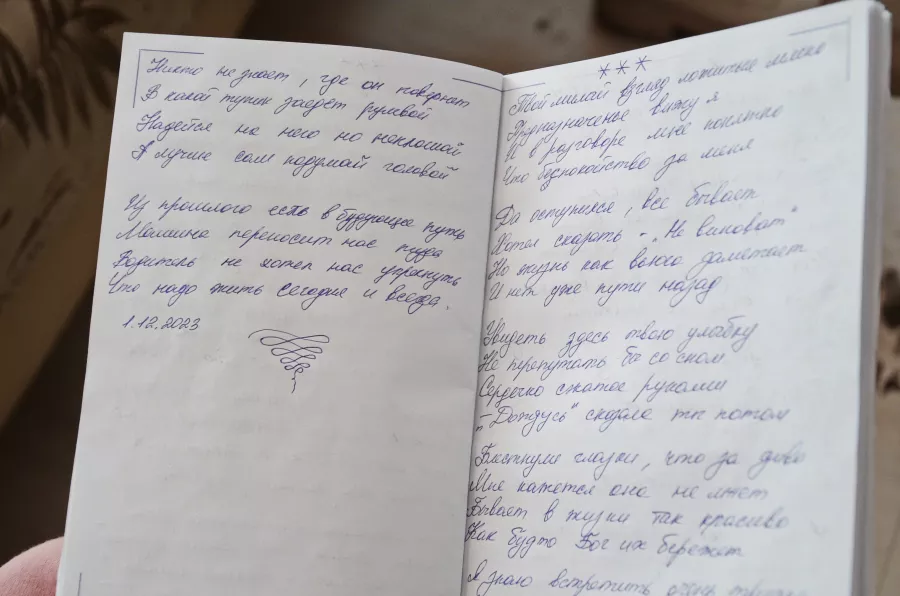 Никто не знает, где он повернет
В какой тупик заедет рулевой
Надейся на него но не плошай
А лучше сам подумай головой
Из прошлого есть в будующее путь
Машина переносит нас туда
Водитель не хотел нас упрекнуть
Что надо жить сегодня и всегда.
1.12.2023
***
Твой милай взгляд ложиться мягко
Предназначенье вижу я
И в разговоре мне понятно
Что беспокойство за меня
Да оступился, все бывает
Хотел сказать - "Не виноват"
Но жизнь как вьюга заметает
И нет уже пути назад
Увидеть здесь твою улыбку
Не перепутать бы со сном
Сердечко сжатое руками
- "Дождусь" сказала ты потом
Блестнули глазки, что за диво
Мне кажется она не лжет
Бывает в жизни так красиво
Как будто Бог их бережет
Я знаю встретить очень